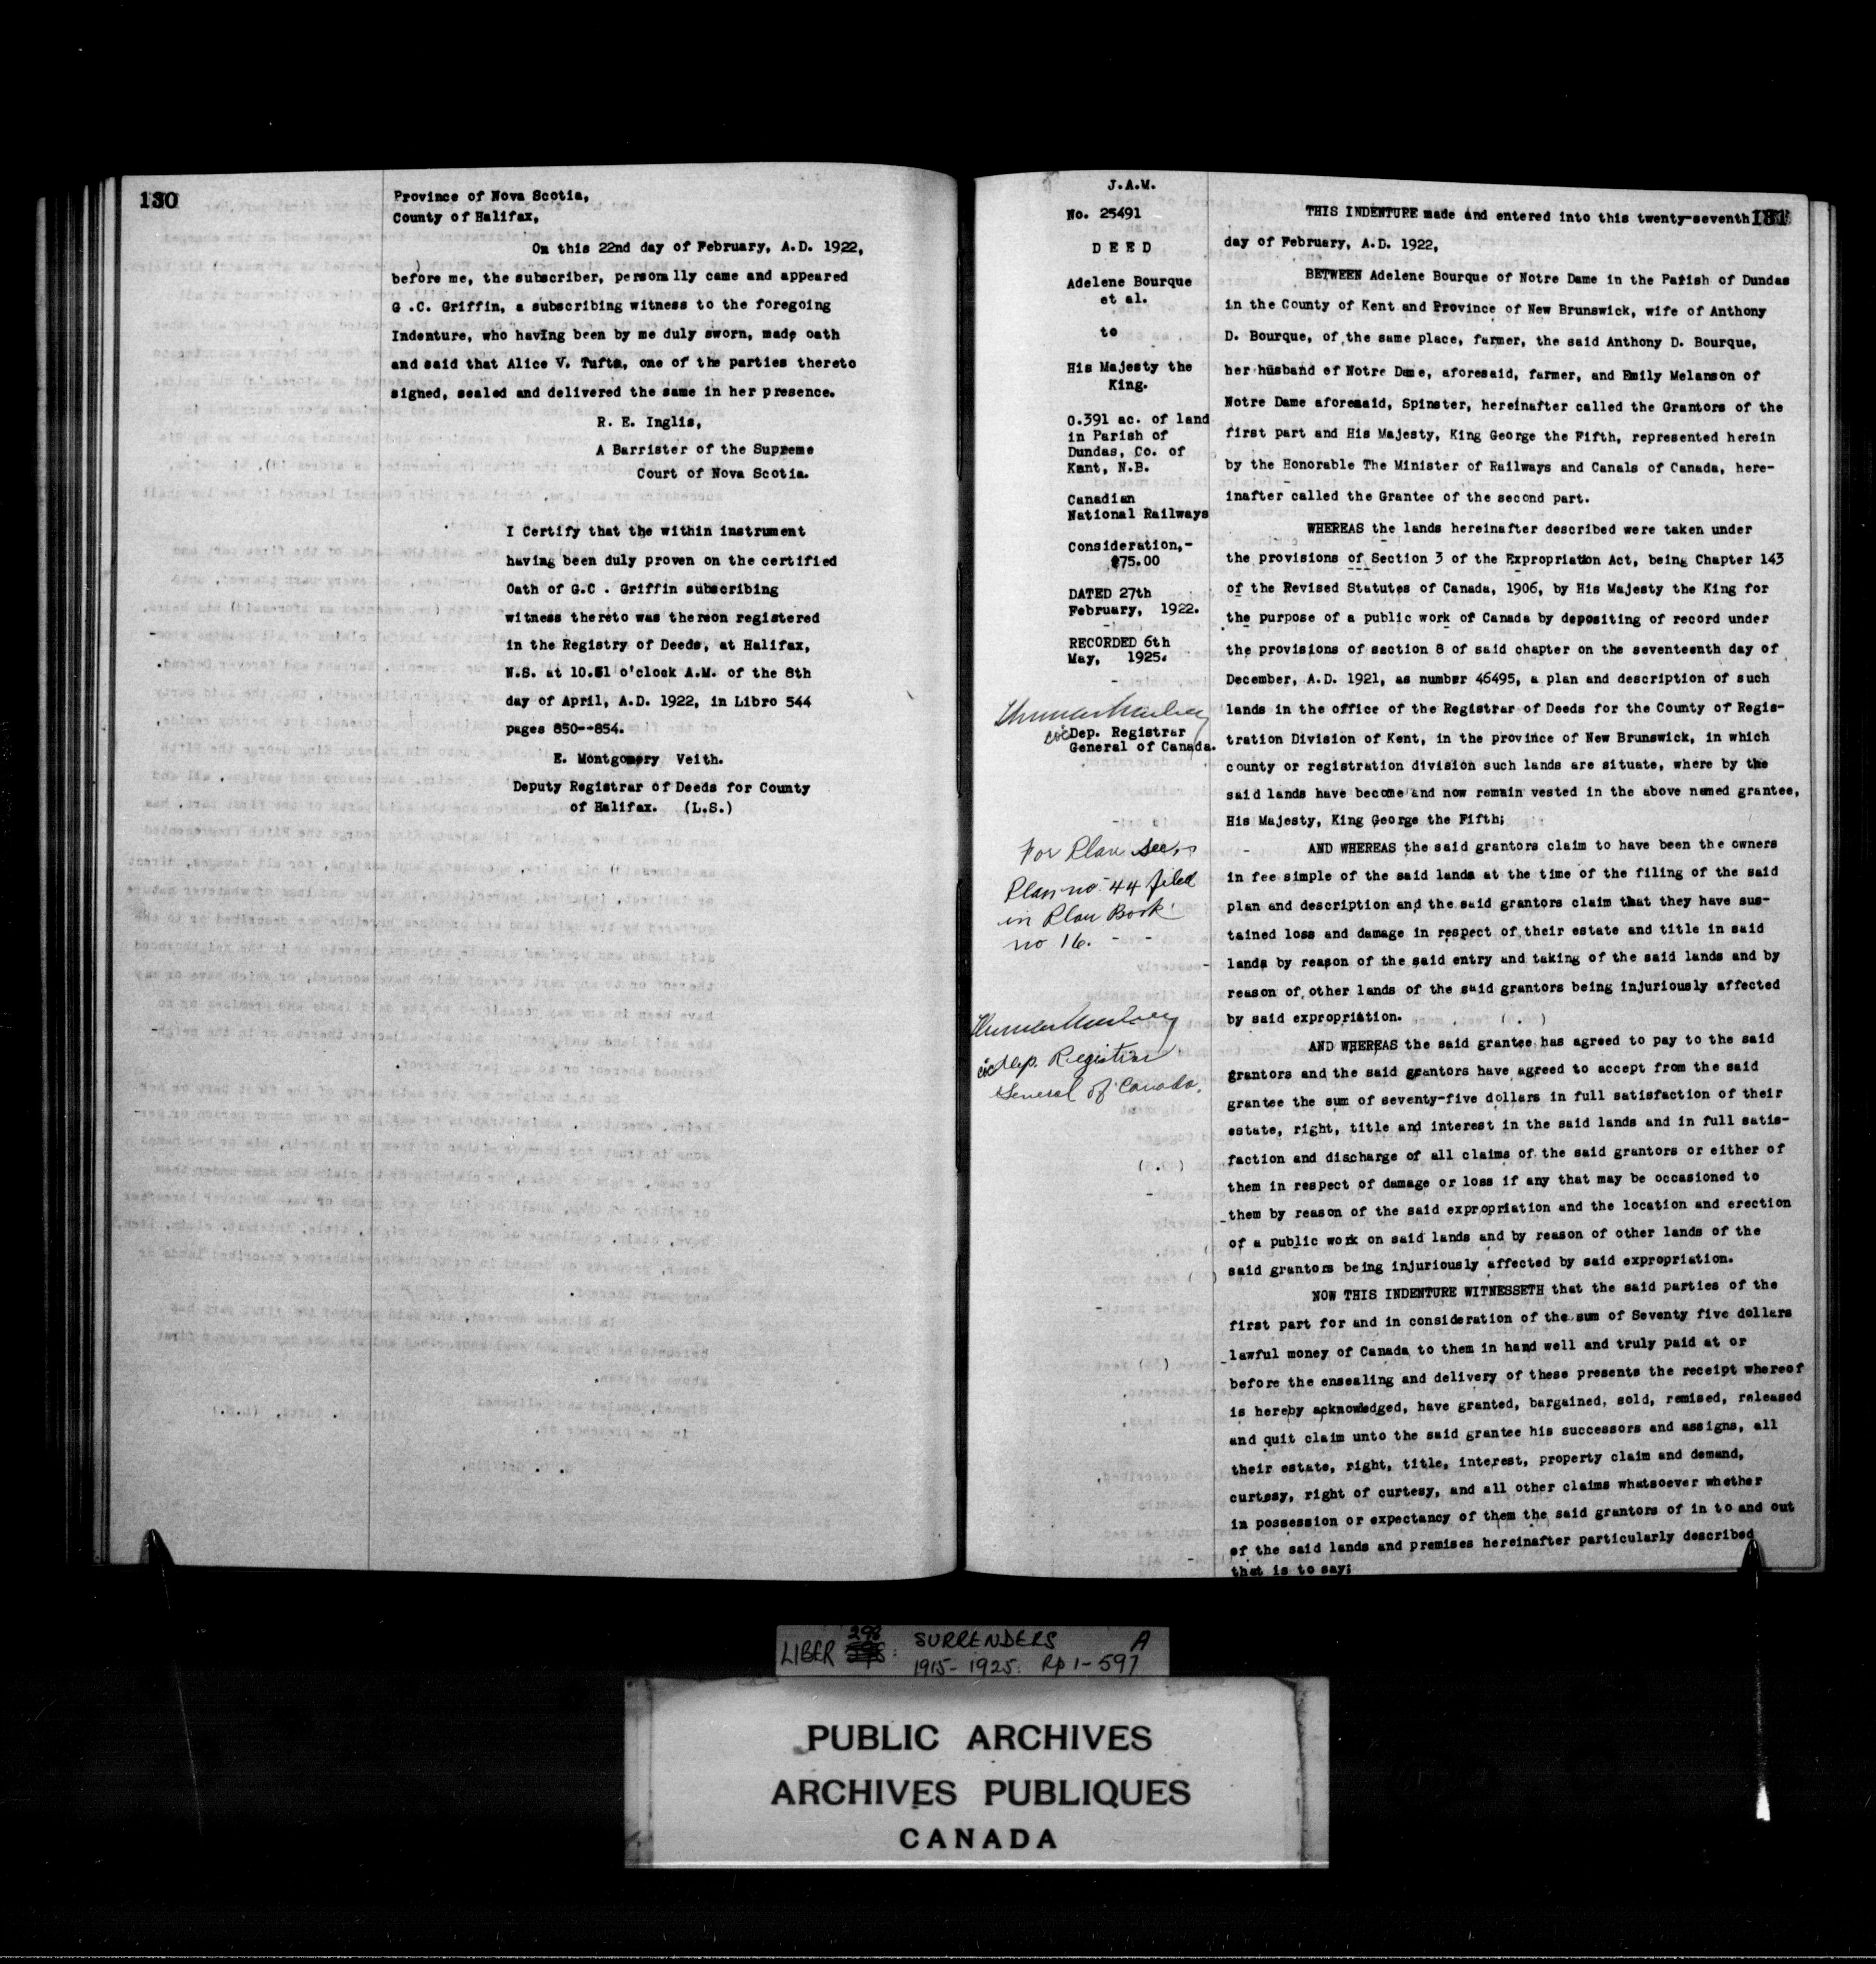 130
Province of Nova Scotia,
County of Halifax,
On this 22nd day of February, A.D. 1922,
before me, the subscriber, personally came and appeared
G .C. Griffin, a subscribing witness to the foregoing
Indenture, who having been by me duly sworn, made oath
and said that Alice V. Tufts, one of the parties thereto
signed, sealed and delivered the same in her presence.
R. E. Inglis,
A Barrister of the Supreme
Court of Nova Scotia.
I Certify that the within instrument
having been duly proven on the certified
Oath of G.C . Griffin subscribing
witness thereto was thereon registered
in the Registry of Deeds, at Halifax,
N.S. at 10.51 o'clock A.M. of the 8th
day of April, A.D. 1922, in Libro 544
pages 850--854.
E. Montgomery Veith.
Deputy Registrar of Deeds for County
of Halifax. (L.S.)
J.A.M.
No. 25491
D E E D
Adelene Bourque
et al.
to
His Majesty the
King.
0.391 ac. of land
in Parish of
Dundas, Co. of
Kent, N.B.
Canadian
National Railways
Consideration,-
$75.00
DATED 27th
February, 1922.
RECORDED 6th
May, 1925.
Dep. Registrar
General of Canada.
For Plan see
Plan no 44 filed
in Plan Book
no 16.
Dep. Registrar
General of Canada.
131
THIS INDENTURE made and entered into this twenty-seventh
day of February, A.D. 1922,
BETWEEN Adelene Bourque of Notre Dame in the Parish of Dundas
in the County of Kent and Province of New Brunswick, wife of Anthony
D. Bourque, of the same place, farmer, the said Anthony D. Bourque,
her husband of Notre Dame, aforesaid, farmer, and Emily Melanson of
Notre Dame aforesaid, Spinster, hereinafter called the Grantors of the
first part and His Majesty, King George the Fifth, represented herein
by the Honorable The Minister of Railways and Canals of Canada, here-
inafter called the Grantee of the second part.
WHEREAS the lands hereinafter described were taken under
the provisions of Section 3 of the Expropriation Act, being Chapter 143
of the Revised Statutes of Canada, 1906, by His Majesty the King for
the purpose of a public work of Canada by depositing of record under
the provisions of section 8 of said chapter on the seventeenth day of
December, A.D. 1921, as number 46495, a plan and description of such
lands in the office of the Registrar of Deeds for the County of Regis-
tration Division of Kent, in the province of New Brunswick, in which
county or registration division such lands are situate, where by the
said lands have become and now remain vested in the above named grantee,
His Majesty, King George the Fifth;
AND WHEREAS the said grantors claim to have been the owners
in fee simple of the said lands at the time of the filing of the said
plan and description and the said grantors claim that they have sus-
tained loss and damage in respect of their estate and title in said
lands by reason of the said entry and taking of the said lands and by
reason of other lands of the said grantors being injuriously affected
by said expropriation.
AND WHEREAS the said grantee has agreed to pay to the said
grantors and the said grantors have agreed to accept from the said
grantee the sum of seventy-five dollars in full satisfaction of their
estate, right, title and interest in the said lands and in full satis-
faction and discharge of all claims of the said grantors or either of
them in respect of damage or loss if any that may be occasioned to
them by reason of the said expropriation and the location and erection
of a public work on said lands and by reason of other lands of the
said grantors being injuriously affected by said expropriation.
NOW THIS INDENTURE WITNESSETH that the said parties of the
first part for and in consideration of the sum of Seventy five dollars
lawful money of Canada to them in hand well and truly paid at or
before the ensealing and delivery of these presents the receipt whereof
is hereby acknowledged, have granted, bargained, sold, remised, released
and quit claim unto the said grantee his successors and assigns, all
their estate, right, title, interest, property claim and demand,
curtesy, right of curtesy, and all other claims whatsoever whether
in possession or expectancy of them the said grantors of in to and out
of the said lands and premises hereinafter particularly described
that is to say;
LIBER 298: SURRENDERS A
1915-1925. Pp 1-597
PUBLIC ARCHIVES
ARCHIVES PUBLIQUES
CANADA